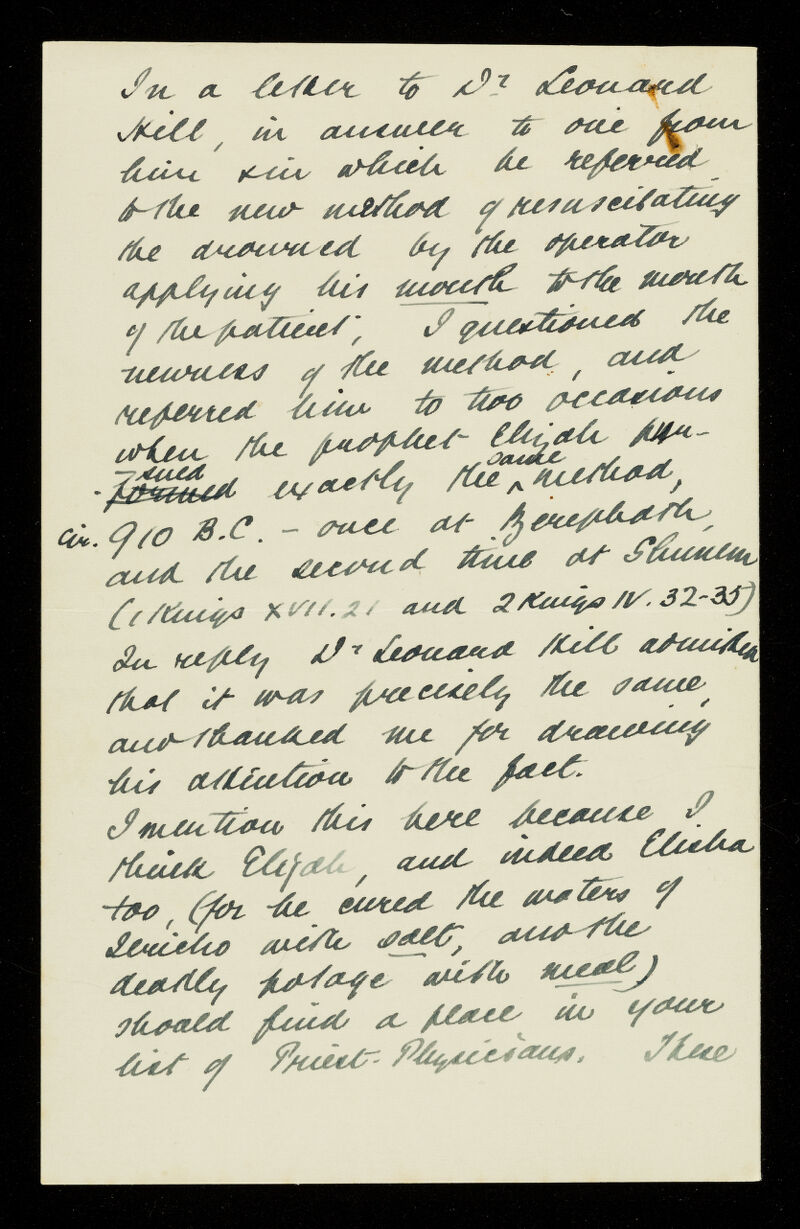 In a letter to Dr Leonard
Hill, in answer to one from
him in which he referred
to the new method of resuscitating
the drowned by the operator
applying his mouth to the mouth
of the patient, I questioned the
newness of the method, and
referred him to two occasions
when the prophet Elijah pur-
sued
-formed exactly the same method,
cir. 910 B.C. - once at Zerephath,
and the second time at Shunem
(1 Kings XVII. 21 and 2 Kings IV. 32-35)
In reply Dr Leonard Hill admitted
that it was precisely the same,
and thanked me for drawing
his attention to the fact.
I mention this here because I
think Elijah, and indeed Elisha
too, (for he cured the waters of
Jericho with salt, and the
deadly potage with meal)
should find a place in your
list of Priest-Physicians. These